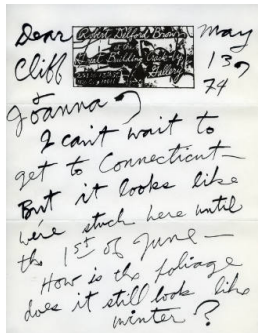 Dear
Robert Delford Brown
at the
Great Building Crack-Up
Gallery
May
13,
74
Cliff
Joanna,
I can't wait to
get to Connecticut—
But it looks like
we're stuck here until
the 1st of June—
How is the foliage
does it still look like
winter?